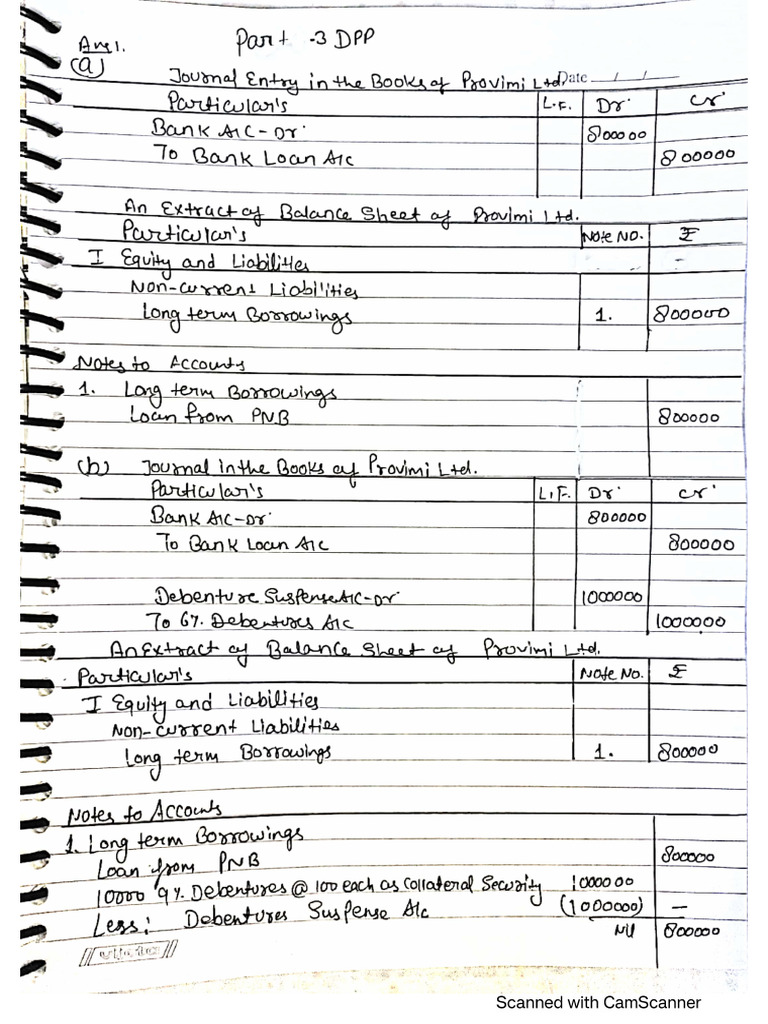 Ans1. Part -3 DPP
(a)
Journal Entry in the Books of Provimi Ltd. Date __/__/__
Particular's L.F. Dr. Cr.
Bank A/C - Dr. 800000
To Bank Loan A/c 800000
An Extract of Balance Sheet of Provimi Ltd.
Particular's Note No. ₹
I Equity and Liabilities
Non-current Liabilities
Long term Borrowings 1. 800000
Notes to Accounts
1. Long term Borrowings
Loan from PNB 800000
(b) Journal in the Books of Provimi Ltd.
Particular's L.F. Dr. Cr.
Bank A/C - Dr. 800000
To Bank Loan A/c 800000
Debenture Suspense A/c - Dr 1000000
To 6% Debentures A/c 1000000
An Extract of Balance Sheet of Provimi Ltd.
Particular's Note No. ₹
I Equity and Liabilities
Non-current Liabilities
Long term Borrowings 1. 800000
Notes to Accounts
1. Long term Borrowings
Loan from PNB 800000
10000 9% Debentures @ 100 each as Collateral Security 1000000
Less: Debentures Suspense A/c (1000000) —
Nil 800000
Scanned with CamScanner